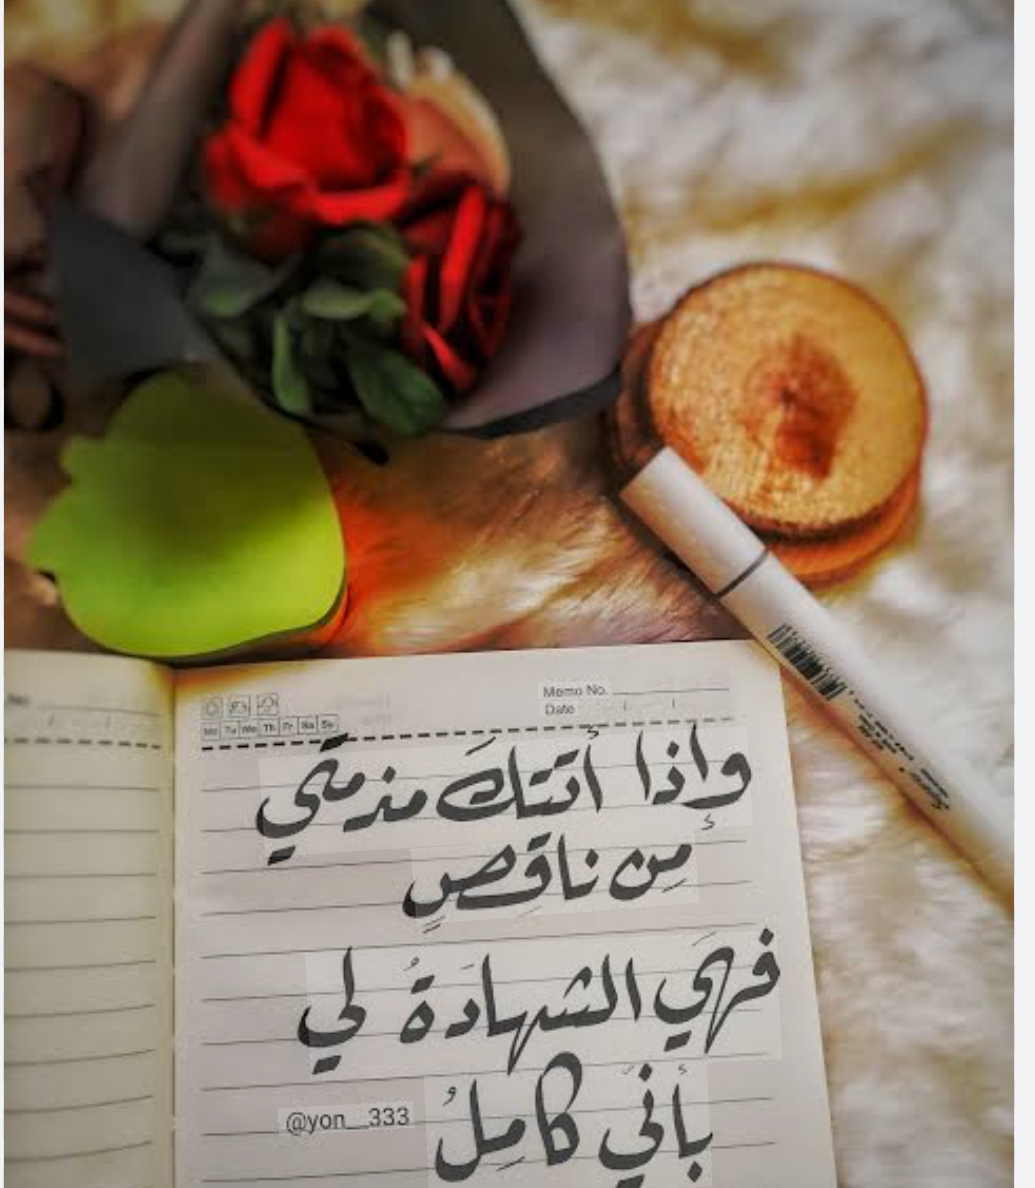 Memo No.
Date
Mo Tu We Th Fr Sa Su
وإذا أتتكَ مذمتي
مِن ناقِصٍ
فهيَ الشهادَةُ لي
بأنيَ كامِلُ
@yon__333